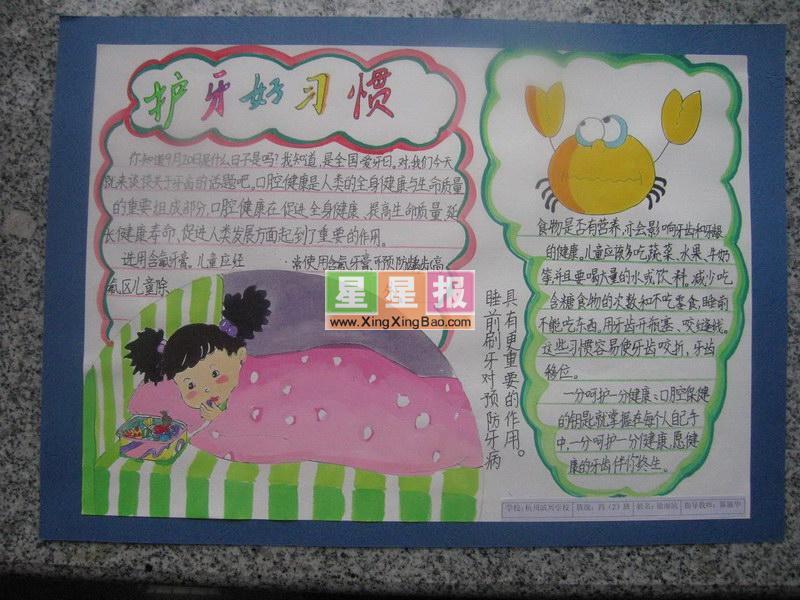 护牙好习惯
你知道9月20日是什么日不是吗?我知道,是全国爱牙日。对,我们今天
就来谈谈关于牙齿的话题吧。口腔健康是人类的全身健康与生命质量
的重要组成部分,口腔健康在促进全身健康、提高生命质量、延
长健康寿命、促进人类发展方面起到了重要的作用。
选用含氟牙膏。儿童应经常使用含氟牙膏可预防龋齿,高
氟区儿童除
星星报
www.XingXingBao.com
睡前刷牙对预防牙病
具有更重要的作用。
食物是否有营养,亦会影响牙齿和牙龈
的健康。儿童应该多吃蔬菜、水果、牛奶
等,并且要喝大量的水或饮料,减少吃
含糖食物的次数和不吃零食,睡前
不能吃东西,用牙齿开瓶塞、咬缝线,
这些习惯容易使牙齿咬折,牙齿
移位。
一分呵护一分健康:口腔保健
的钥匙就掌握在每个人自己手
中,一分呵护一分健康,愿健
康的牙齿伴你终生。
学校:杭州滨兴学校 班级:四(2)班 姓名: 指导教师: